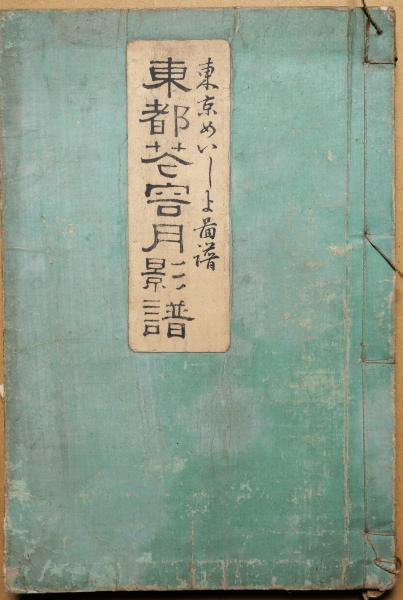 東京めいしよ圖譜
東都花容月影譜